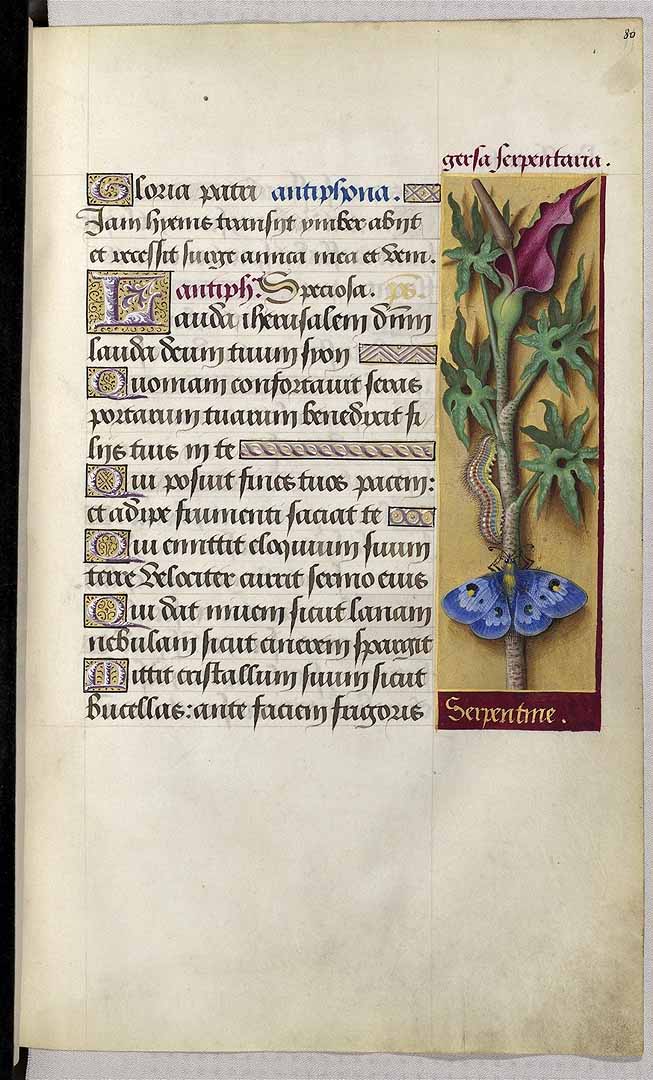 80
gersa serpentaria.
Gloria patri antiphona.
Jam hyems transijt ymber abijt
et recessit surge amica mea et veni.
antiph. Speciosa. ps.
Lauda iherusalem dnm
lauda deum tuum syon
Quoniam confortavit seras
portarum tuarum benedixit fi
lijs tuis in te
Qui posuit fines tuos pacem:
et adipe frumenti saciat te
Qui emittit eloquium suum
terre velociter currit sermo eius
Qui dat nivem sicut lanam
nebulam sicut cinerem spargit
Mittit cristallum suum sicut
bucellas: ante faciem frigoris
Serpentine.